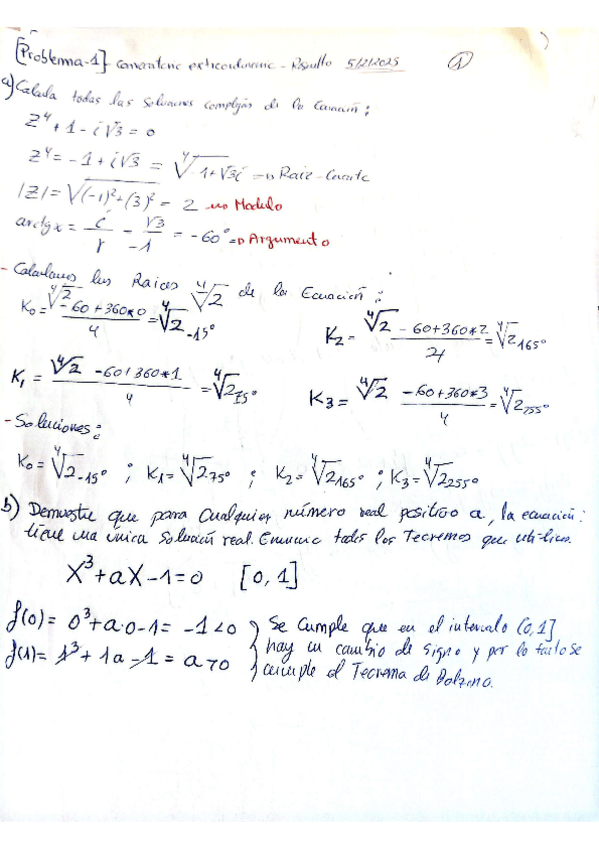 [Problema-1] convocatoria extraordinaria - Resuelto 5/2/2025 ①
a) Calcula todas las soluciones complejas de la Ecuación:
z⁴ + 1 - i√3 = 0
z⁴ = -1 + i√3 = ⁴√-1+√3i => Raiz-Cuarta
|z| = √(-1)²+(3)² = 2 => Modulo
arctgx = i/r - √3/-1 = -60° => Argumento
- Calculamos las Raices ⁴√2 de la Ecuación:
K₀ = ⁴√2 -60+360*0/4 = ⁴√2 -15°
K₂ = ⁴√2 -60+360*2/4 = ⁴√2 165°
K₁ = ⁴√2 -60+360*1/4 = ⁴√2 75°
K₃ = ⁴√2 -60+360*3/4 = ⁴√2 255°
- Soluciones:
K₀ = ⁴√2 -15° ; K₁ = ⁴√2 75° ; K₂ = ⁴√2 165° ; K₃ = ⁴√2 255°
b) Demuestre que para cualquier número real positivo a, la ecuación:
tiene una unica solución real. Enuncie todos los Teoremas que utilice.
x³ + ax - 1 = 0 [0, 1]
f(0) = 0³ + a·0 - 1 = -1 < 0
f(1) = 1³ + 1a - 1 = a > 0
Se cumple que en el intervalo [0,1]
hay un cambio de signo y por lo tanto se
cumple el Teorema de Bolzano.